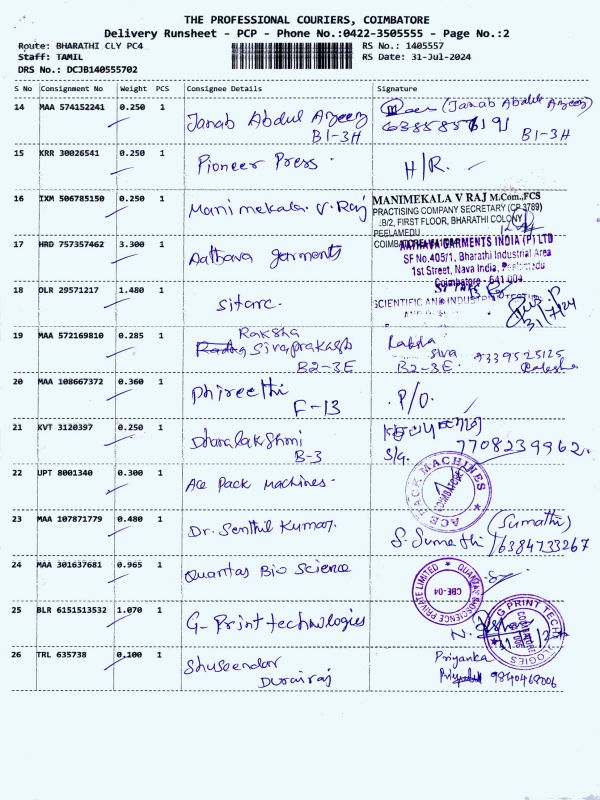 THE PROFESSIONAL COURIERS, COIMBATORE
Delivery Runsheet - PCP - Phone No.:0422-3505555 - Page No.:2
Route: BHARATHI CLY PC4
RS No.: 1405557
Staff: TAMIL
RS Date: 31-Jul-2024
DRS No.: DCJB140555702
S No Consignment No Weight PCS Consignee Details Signature
14 MAA 574152241 0.250 1 Janab Abdul Azeez (Janab Abdul Azeez)
B1-3H B1-3H
15 KRR 30026541 0.250 1 Pioneer Press. H/R.
16 IXM 506785150 0.250 1 Manimekala. V. Raj MANIMEKALA V RAJ M.Com.,FCS
PRACTISING COMPANY SECRETARY (CP 3789)
B/2, FIRST FLOOR, BHARATHI COLONY
PEELAMEDU
17 HRD 757357462 3.300 1 Aathava garments GARMENTS INDIA (P) LTD
SF No.405/1, Bharathi Industrial Area
1st Street, Nava India, Peelamedu
Coimbatore - 641 004
18 DLR 29571217 1.480 1 sitarc. SCIENTIFIC AND INDUSTRIAL TESTING
31/7/24
19 MAA 572169810 0.285 1 Raksha
Sivaprakash Siva
B2-3E B2-3E
20 MAA 108667372 0.360 1 Phireethi P/O.
F-13
21 KVT 3120397 0.250 1 Dhanalakshmi
B-3 S/G. 7708239962.
22 UPT 8001340 0.300 1 Ace Pack Machines. ACE PACK MACHINES COIMBATORE
23 MAA 107871779 0.480 1 Dr. Senthil Kumar. (Sumathi)
S. Sumathi /6384733267
24 MAA 301637681 0.965 1 Quantas Bio Science QUANTAS BIOSCIENCE PRIVATE LIMITED CBE-04
25 BLR 6151513532 1.070 1 G-Print technologies G PRINT TECHNOLOGIES
26 TRL 635738 0.100 1 Shuseendar Priyanka
Durairaj 9840468006